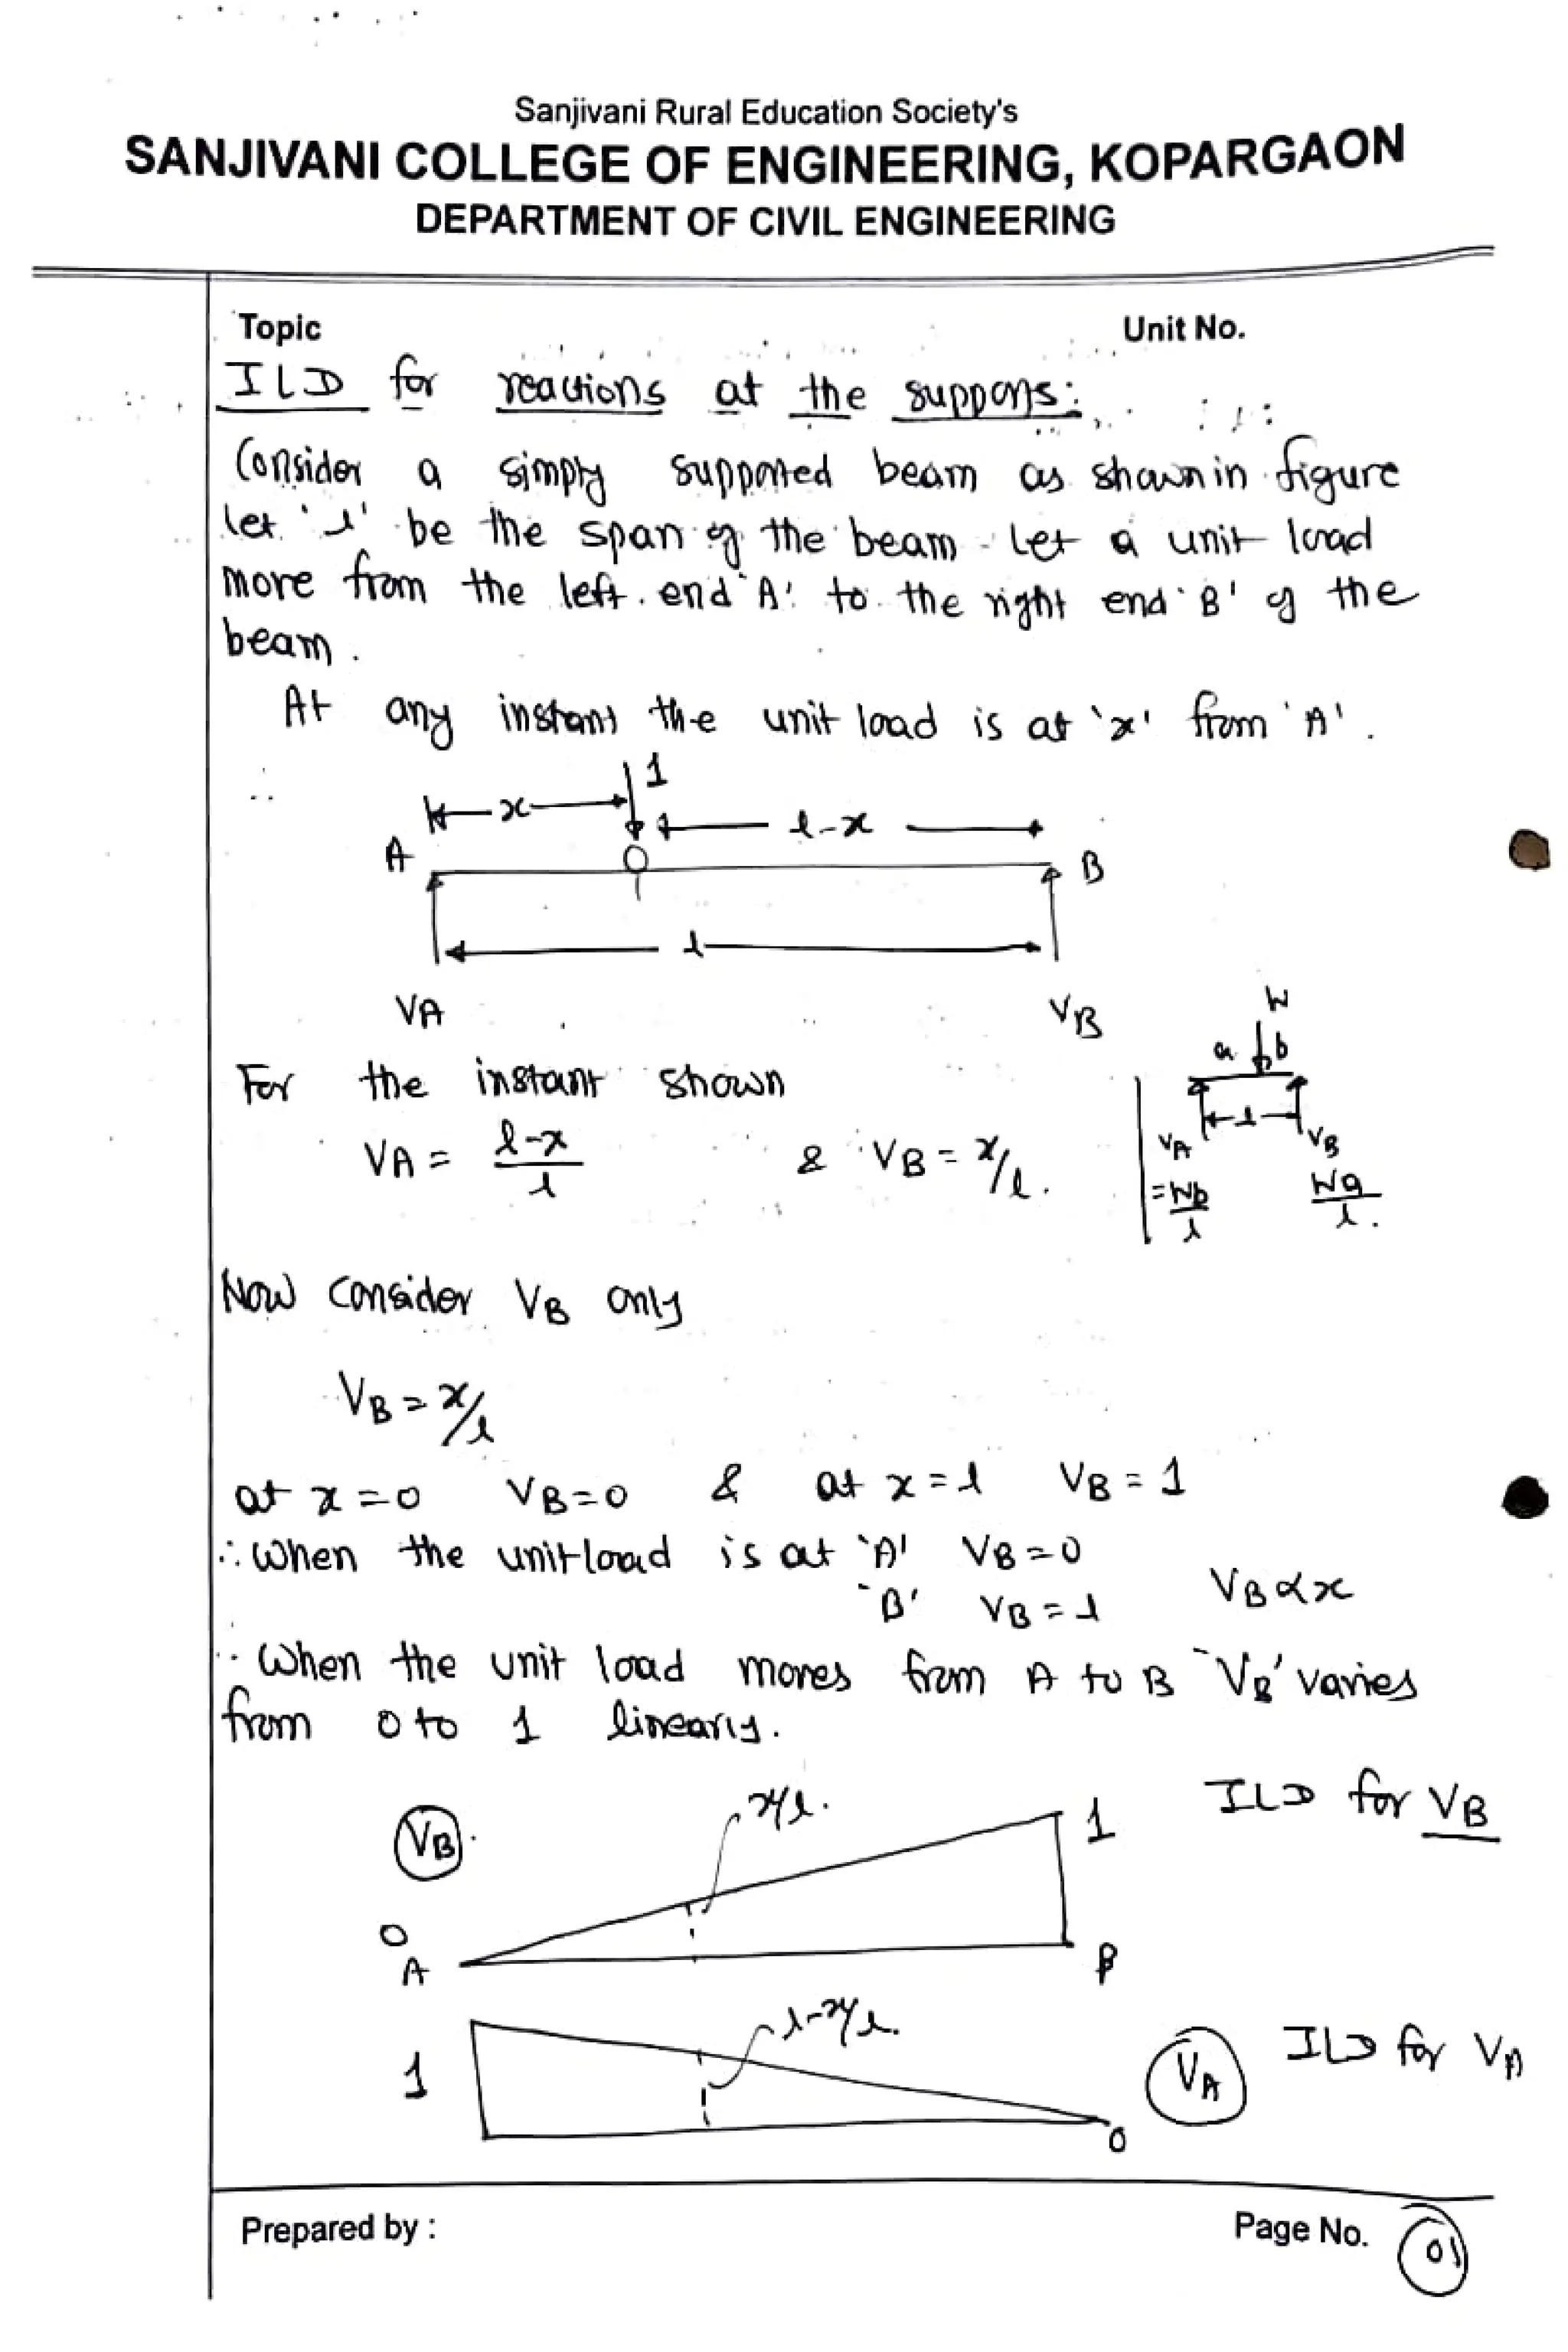 Sanjivani Rural Education Society's
SANJIVANI COLLEGE OF ENGINEERING, KOPARGAON
DEPARTMENT OF CIVIL ENGINEERING
Topic Unit No.
ILD for reactions at the supports:
Consider a simply supported beam as shown in figure
let 'l' be the span of the beam. Let a unit load
move from the left end 'A' to the right end 'B' of the
beam.
At any instant the unit load is at 'x' from 'A'.
1
x l-x
A B
l
VA VB
W
a b
l
VA VB
= Wb/l Wa/l.
For the instant shown
VA = l-x/l & VB = x/l.
Now consider VB only
VB = x/l
at x=0 VB=0 & at x=l VB=1
∴ When the unit load is at 'A' VB=0
'B' VB=1 VB∝x
∴ When the unit load moves from A to B 'VB' varies
from 0 to 1 linearly.
x/l. ILD for VB
VB 1
0
A B
l-x/l. ILD for VA
1 VA
0
Prepared by : Page No. 01